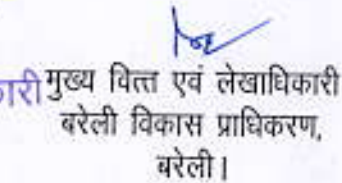 कारी मुख्य वित्त एवं लेखाधिकारी
बरेली विकास प्राधिकरण,
बरेली।